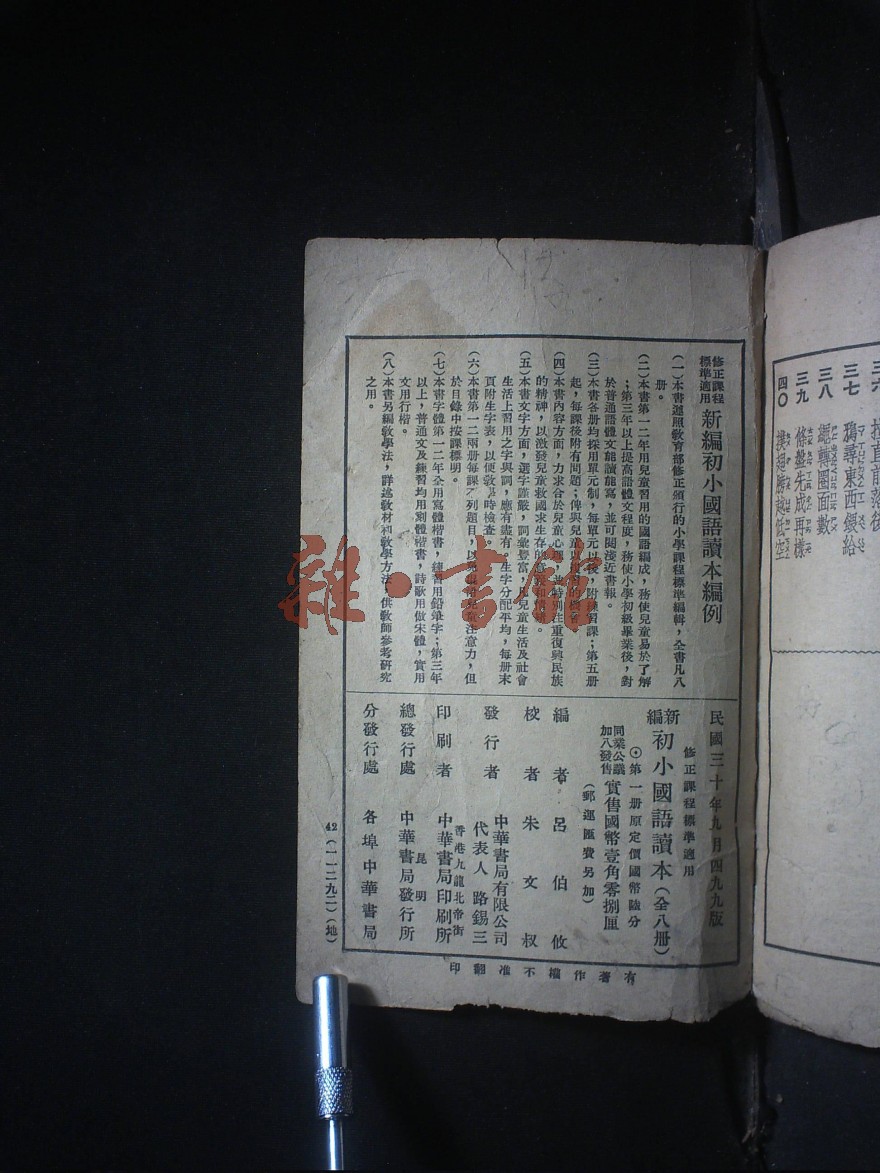 三七 鴉尋東西領給
三八 繩轉圈面數
三九 條盤先成再樣
四〇 撲翅勝越低空
修正課程
標準適用
新編初小國語讀本編例
(一)本書遵照敎育部修正頒行的小學課程標準編輯,全書凡八
册。
(二)本書第一二年用兒童習用的國語編成,務使兒童易於了解
;第三年以上提高語體文程度,務使小學初級畢業後,對
於普通語體文能讀能寫,並可閱淺近書報。
(三)本書各册均採用單元制,每單元以後,附練習課;第五册
起,每課後附有問題;俾與兒童以練習的機會。
(四)本書內容方面,力求合於兒童心理,並特別注重復興民族
的精神,以激發兒童救國求生存的意義和情緒。
(五)本書文字方面,選字謹嚴,詞彙豐富,凡兒童生活及社會
生活上習用之字與詞,應有盡有。生字分配平均,每册末
頁附生字表,以便敎學時檢查。
(六)本書第一二兩册每課不列題目,以免分散兒童注意力,但
於目錄中按課標明。
(七)本書字體第一二年全用寫體楷書,練習用鉛筆字;第三年
以上,普通文及練習均用刻體楷書,詩歌用倣宋體,實用
文用行楷。
(八)本書另編敎學法,詳述敎材和敎學方法,供敎師參考研究
之用。
民國三十年九月四九九版
修正課程標準適用
新編 初小國語讀本(全八册)
⊙第一册原定價國幣陸分
同業公議
加八發售
實售國幣壹角零捌厘
(郵運匯費另加)
編者 呂伯攸
校者 朱文叔
發行者 中華書局有限公司
代表人 路錫三
印刷者 香港九龍北帝街
中華書局印刷所
總發行處 昆明
中華書局發行所
分發行處 各埠中華書局
42(一一二九二)(地)
有著作權不准翻印
雜·書館